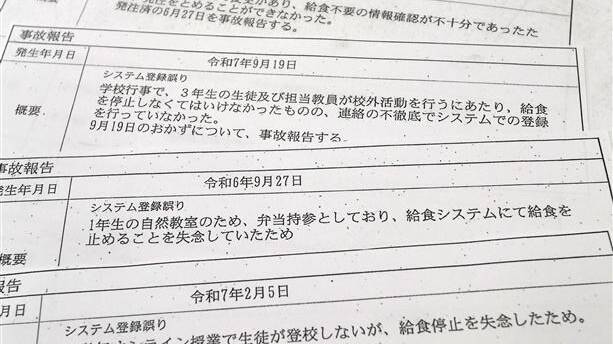 発注をとめることができなかった。
があり、給食不要の情報確認が不十分であったた
発注済の6月27日を事故報告する。
事故報告
発生年月日
令和7年9月19日
概要
システム登録誤り
学校行事で、3年生の生徒及び担当教員が校外活動を行うにあたり、給食
を停止しなくてはいけなかったものの、連絡の不徹底でシステムでの登録
を行っていなかった。
9月19日のおかずについて、事故報告する。
事故報告
発生年月日
令和6年9月27日
概要
システム登録誤り
1年生の自然教室のため、弁当持参としており、給食システムにて給食を
止めることを失念していたため
報告
月日
令和7年2月5日
システム登録誤り
オンライン授業で生徒が登校しないが、給食停止を失念したため。